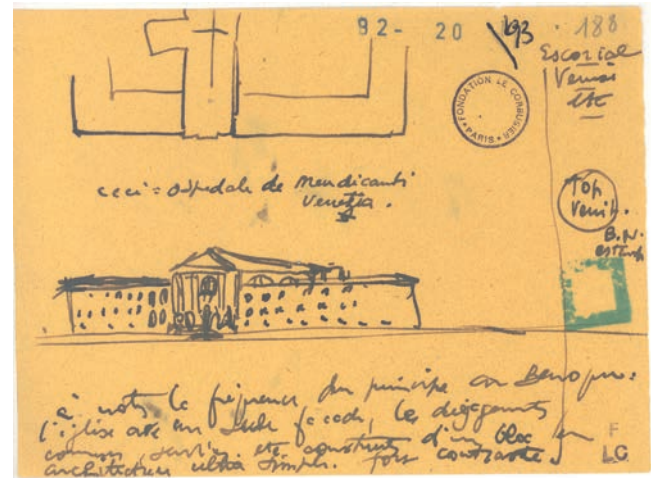 92- 20 193 188
Escorial
Venise
etc
FONDATION LE CORBUSIER
PARIS
ceci = ospedale de Mendicanti
Venezia.
Top
Venit.
B.N.
estamp
à noter la fréquence du principe
l'église avec un seule façade, les dégagements
communs, services etc construits d'un bloc en
architecture ultra simple. fort contraste
F
LC